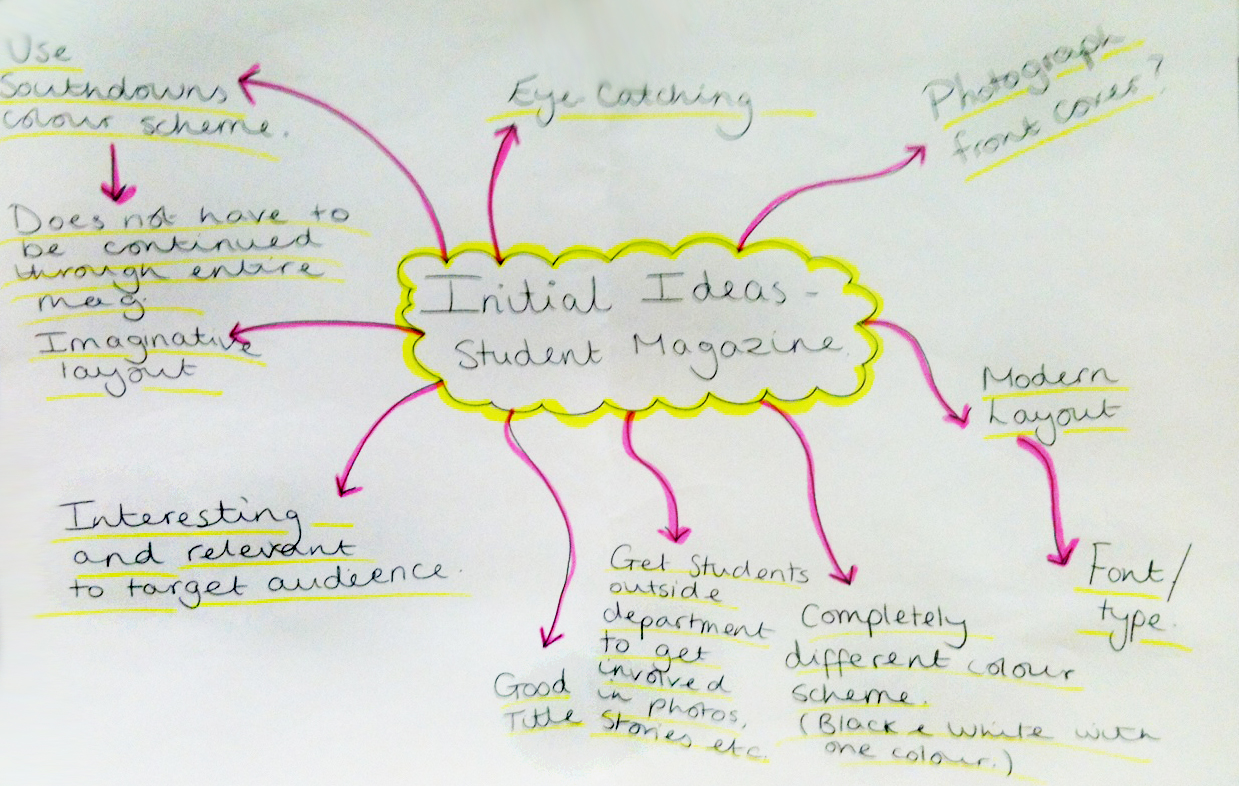 Initial Ideas -
Student Magazine.
Use
Southdowns
colour scheme.
Does not have to
be continued
through entire
mag.
Imaginative
layout
Eye Catching
Photograph
front cover?
Modern
Layout
Font/
type.
Interesting
and relevant
to target audeence.
Good
Title
Get Students
outside
department
to get
involved
in photos,
stories etc.
Completely
different colour
scheme.
(Black & White with
one colour.)